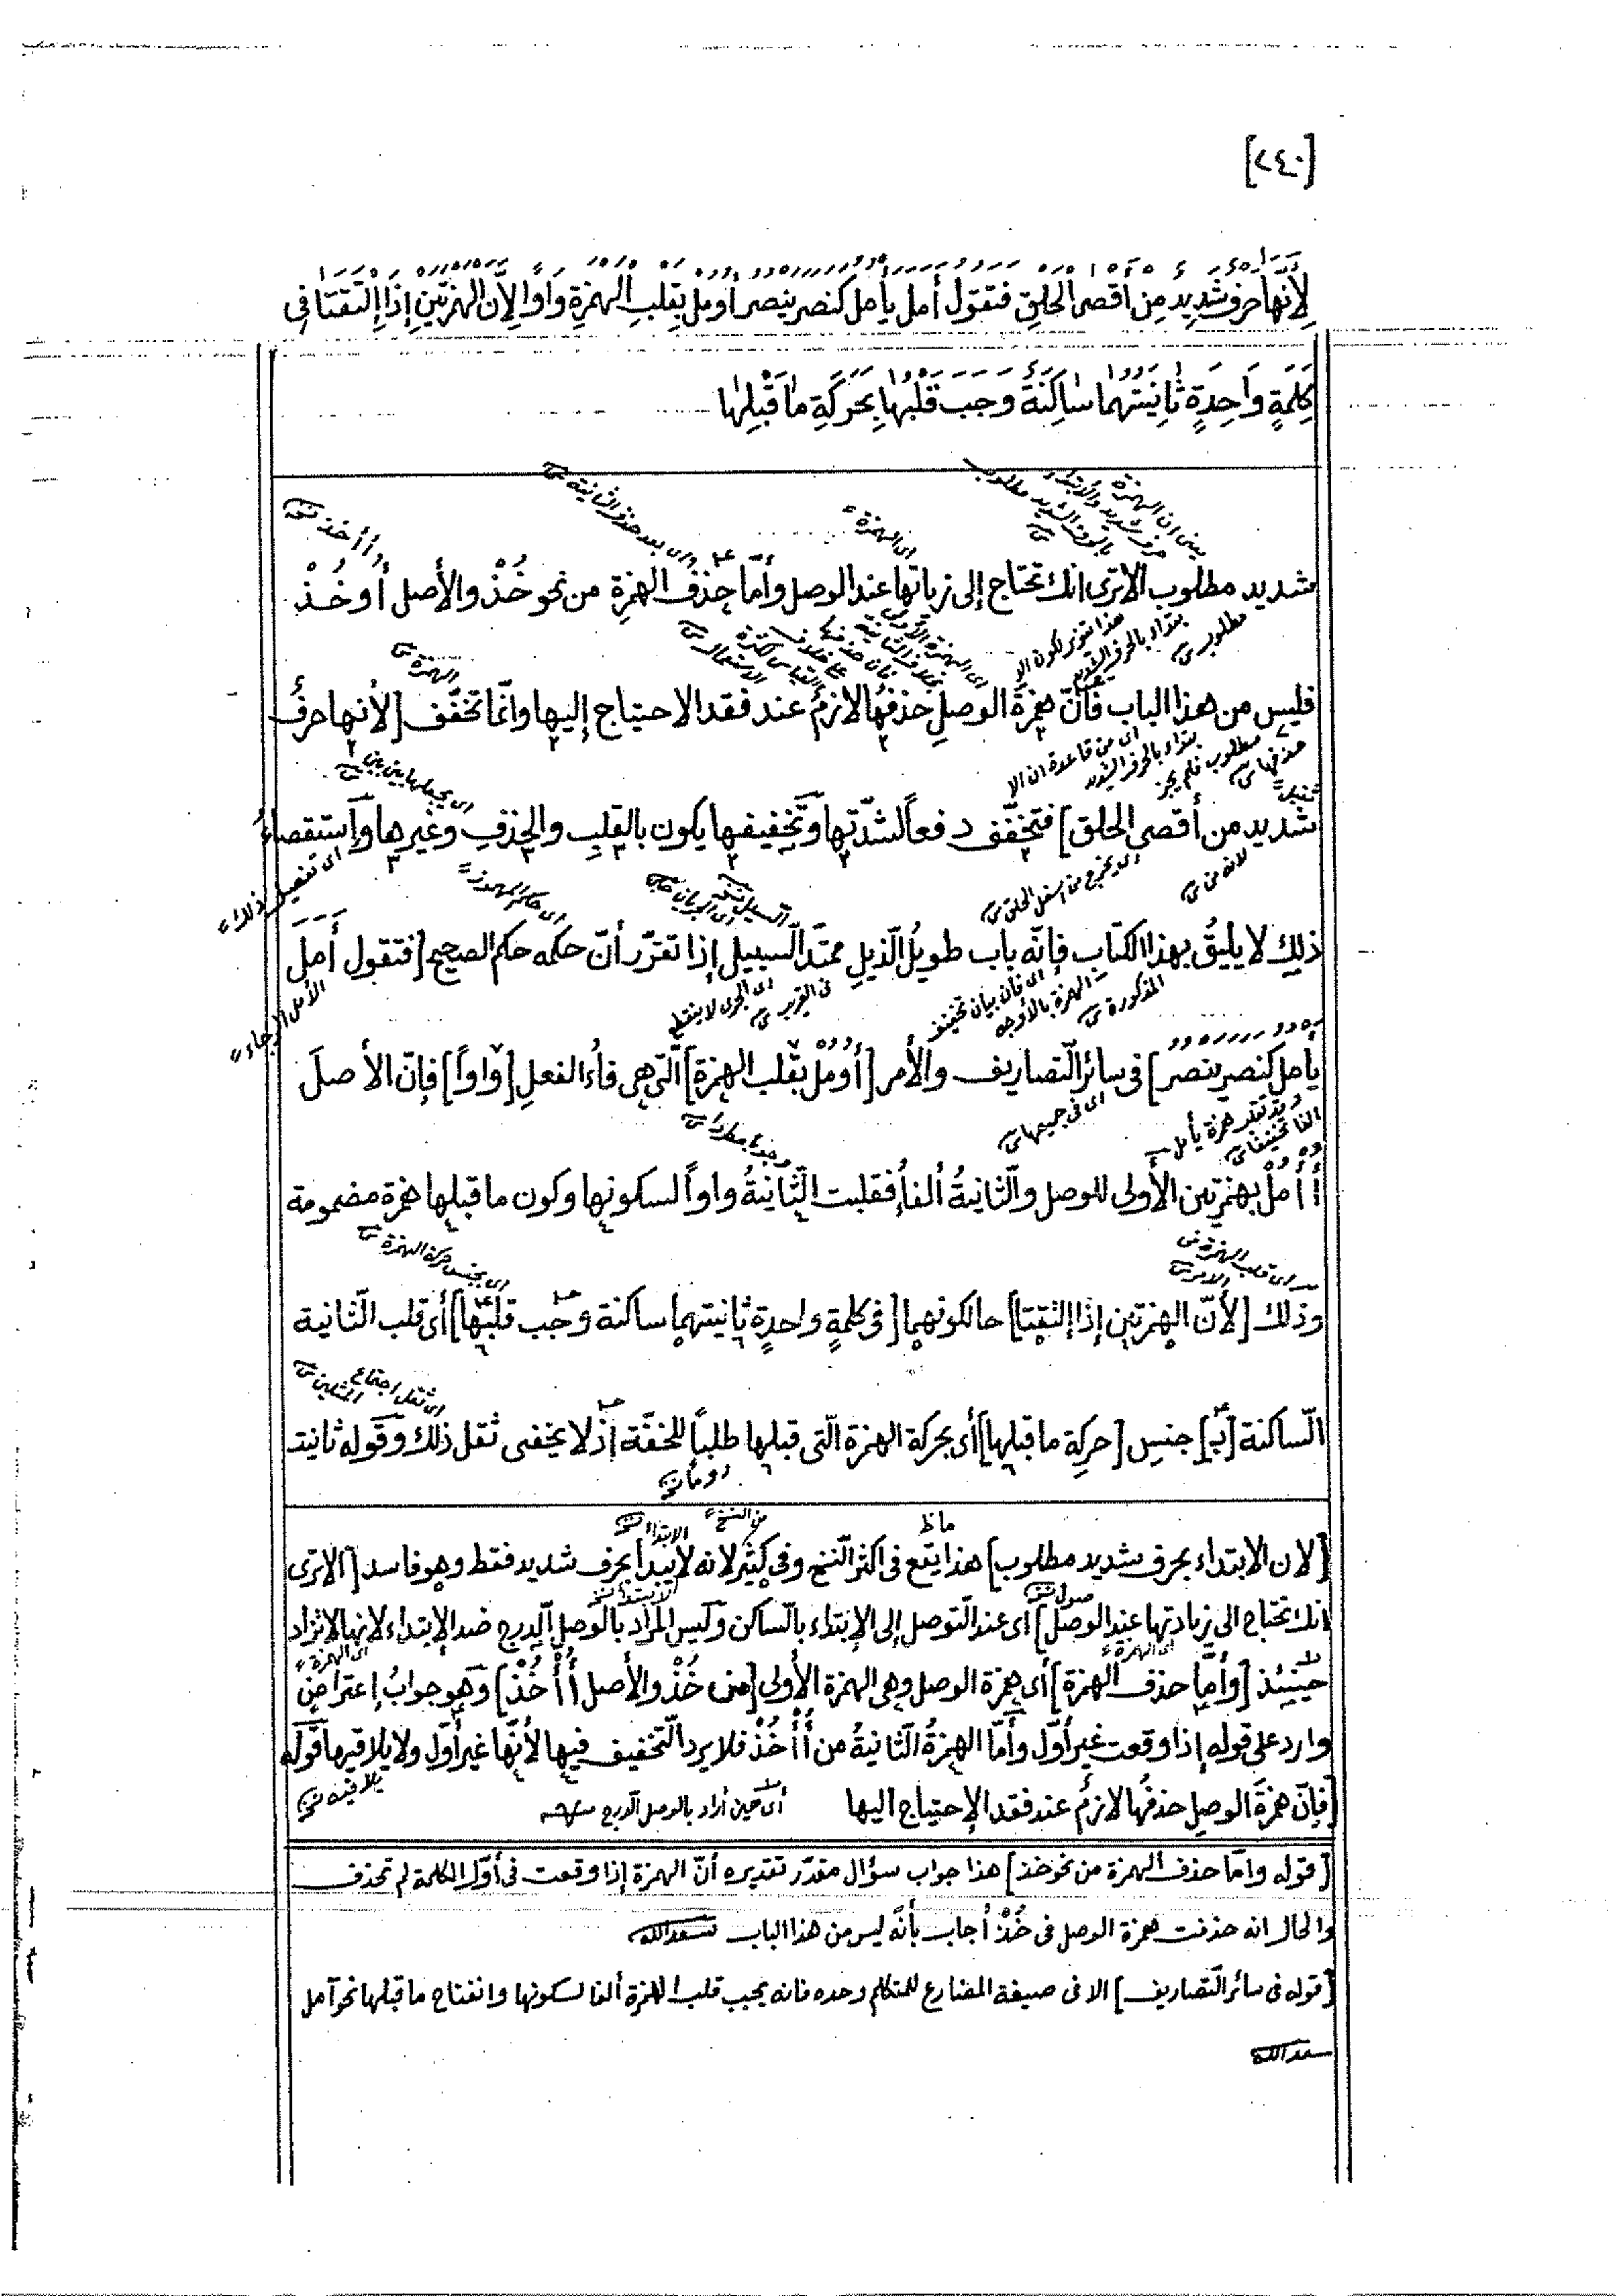 [٢٤٠]
لِأَنَّهَا حَرْفٌ شَدِيدٌ مِنْ أَقْصَى الْحَلْقِ فَتَقُولُ أَمَلَ يَأْمُلُ كَنَصَرَ يَنْصُرُ أُومُلْ بِقَلْبِ الْهَمْزَةِ وَاوًا لِأَنَّ الْهَمْزَتَيْنِ إِذَا الْتَقَتَا فِي
كَلِمَةٍ وَاحِدَةٍ ثَانِيَتُهُمَا سَاكِنَةٌ وَجَبَ قَلْبُهَا بِحَرَكَةِ مَا قَبْلَهَا
يعنى ان الهمزة حرف شديد والابتداء بالحرف الشديد مطلوب
اى الهمزة
اى بعد حذف الثانية
أأخذ نسخه
شديد مطلوب الا ترى انك تحتاج إلى زيادتها عند الوصل وأمّا حذف الهمزة من نحو خُذْ والأصل أوخُذْ
الهمزة
فليس من هذا الباب فانّ همزةَ الوصلِ حذفُها لازمٌ عند فقد الاحتياج إليها وانّما تخفّف [لأنها حرفٌ
اى يجعلها بين بين
شديد من أقصى الحلق] فتخفّف دفعاً لشدّتها وتخفيفها يكون بالقلبِ والحذفِ وغيرها واستقصاءُ
لانه من
اى يخرج من اسفل الحلق
اى حكم المهموز
اى تفصيل ذلك
ذلك لا يليقُ بهذا الكتاب فإنّه باب طويلُ الذّيلِ ممتدّ السّبيل إذا تقرّر أنّ حكمه حكم الصحيح [فتقول أَمَلَ
اى فان بيان تخفيف الهمزة بالأوجه المذكورة
الأمل الرجاء
يأمل كنصر ينصر] فى سائر التّصاريف والأمر [أُومُلْ بقلب الهمزة] الّتى هى فاءُ الفعلِ [واواً] فإنّ الأصلَ
وقد تقلب همزة يأمل الفا تخفيفا
اى فى جميعها
أُأْمُلْ بهمزتين الأولى للوصل والثّانيةُ ألفاً فقلبت الثّانيةُ واواً لسكونها وكون ما قبلها همزة مضمومة
اى بجنس حركة الهمزة
وذلك [لأنّ الهمزتين إذا التقتا] حالكونهما [فى كلمةٍ واحدةٍ ثانيتهما ساكنة وجب قلبها] أى قلب الثّانية
اى ثقل اجتماع المثلين
السّاكنة [بـ] جنسِ [حركة ما قبلها] أى بحركة الهمزة الّتى قبلها طلباً للخفّة إذ لا يخفى ثقل ذلك وقوله ثانيتـ
من النسخ
الابتداء
[لان الابتداء بحرف شديد مطلوب] هذا يقع فى اكثر النّسخ وفى كثير لانه لا يبدأ بحرف شديد فقط وهو فاسد [الا ترى
انك تحتاج الى زيادتها عند الوصل] اى عند التّوصل إلى الإبتداء بالسّاكن وليس المراد بالوصل الدرج ضد الإبتداء لانها لا تزاد
اى الهمزة
اى الهمزة
حينئذ [وأمّا حذف الهمزة] أى همزة الوصل وهى الهمزة الأولى [من خُذْ والأصل أُأْخُذْ] وهو جوابُ إعتراضٍ
وارد على قوله إذا وقعت غير أوّل وأمّا الهمزةُ الثّانيةُ من أُأْخُذْ فلا يرد التّخفيف فيها لأنّها غير أوّل ولا يلاقيها قوله
[فإنّ همزةَ الوصلِ حذفُها لازمٌ عند فقد الإحتياج اليها
أى حين أراد بالوصل الدرج
يلاقيه
[قوله وامّا حذف الهمزة من نحو خذ] هذا جواب سؤال مقدّر تقديره أنّ الهمزة إذا وقعت فى أوّل الكلمة لم تحذف
والحال انه حذفت همزة الوصل فى خُذْ أجاب بأنّه ليس من هذا الباب سعد الله
[قوله فى سائر التّصاريف] الا فى صيغة المضارع للمتكلم وحده فانه يجب قلب الهمزة ألفا لسكونها وانفتاح ما قبلها نحو آمل
سعد الله